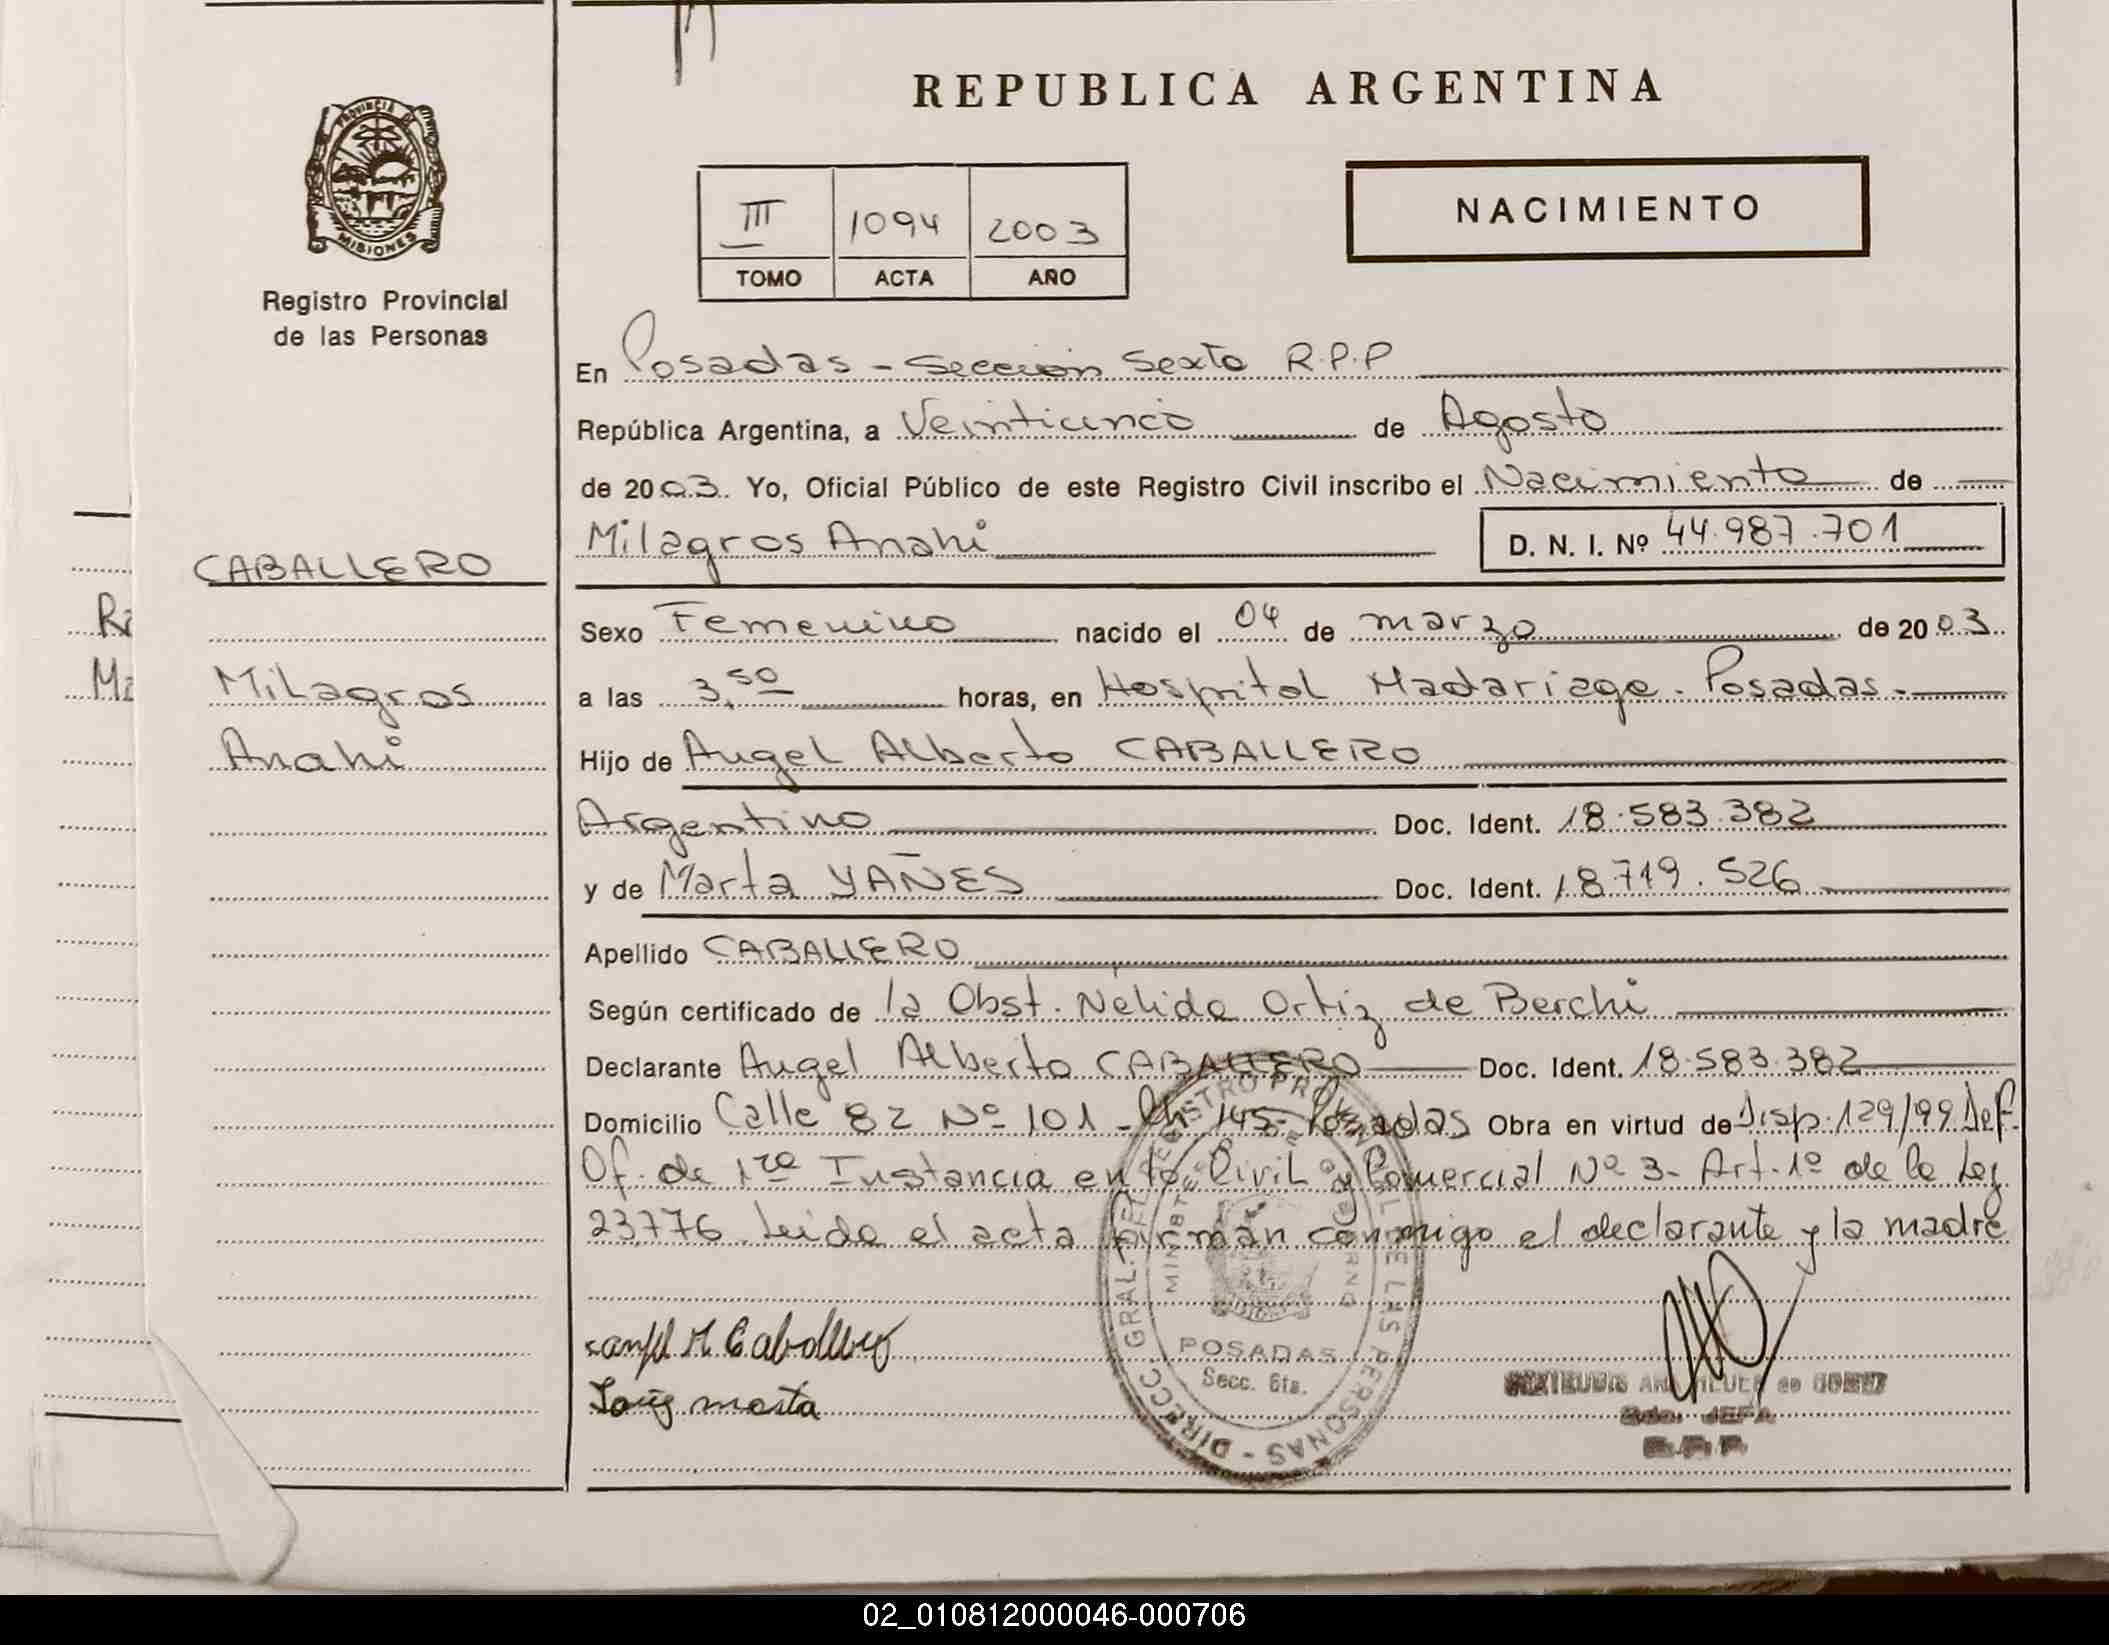 REPUBLICA ARGENTINA
PROVINCIA DE
MISIONES
Registro Provincial
de las Personas
III 1094 2003
TOMO ACTA AÑO
NACIMIENTO
En Posadas - Sección Sexta R.P.P
República Argentina, a Veinticinco de Agosto
de 2003. Yo, Oficial Público de este Registro Civil inscribo el Nacimiento de
Milagros Anahi D. N. I. Nº 44.987.701
CABALLERO
Milagros
Anahi
Sexo Femenino nacido el 04 de marzo de 2003
a las 3,50 horas, en Hospital Madariaga. Posadas.
Hijo de Angel Alberto CABALLERO
Argentino Doc. Ident. 18.583.382
y de Marta YAÑES Doc. Ident. 18.719.526
Apellido CABALLERO
Según certificado de la Obst. Nelida Ortiz de Berchi
Declarante Angel Alberto CABALLERO Doc. Ident. 18.583.382
Domicilio Calle 82 Nº 101 - Ch 145 - Posadas Obra en virtud de Disp. 129/99 Def.
Of. de 1ra Instancia en lo Civil y Comercial Nº 3 - Art. 1º de la Ley
23.776. Leida el acta firman conmigo el declarante y la madre
Caballero
marta
DIRECC. GRAL. DEL REGISTRO PROVINCIAL DE LAS PERSONAS
POSADAS
Secc. 6ta.
JEFA
R.P.P.
Ra
Ma
02_010812000046-000706